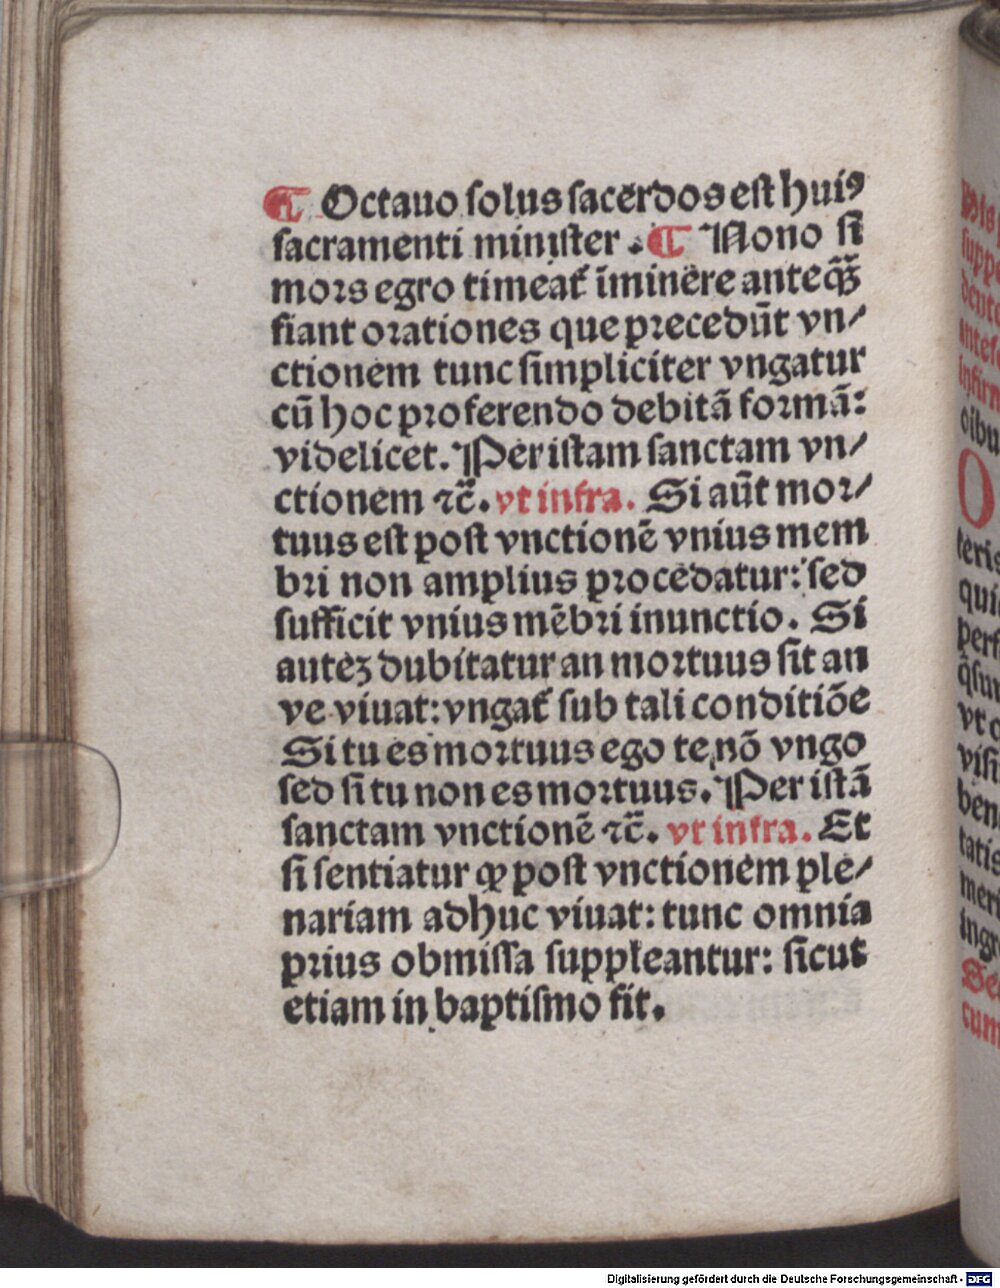 ¶ Octauo solus sacerdos est huiꝰ
sacramenti minister. ¶ Nono si
mors egro timeat᷑ īminere anteq̄ꝫ
fiant orationes que precedūt vn/
ctionem tunc simpliciter vngatur
cū hoc proferendo debitā formā:
videlicet. Per istam sanctam vn/
ctionem ⁊c̄. vt infra. Si aūt mor/
tuus est post vnctionē vnius mem
bri non amplius procedatur: sed
sufficit vnius mēbri inunctio. Si
autēꝫ dubitatur an mortuus sit an
ve viuat: vngat᷑ sub tali conditiōe
Si tu es mortuus ego te nō vngo
sed si tu non es mortuus. Per istā
sanctam vnctionē ⁊c̄. vt infra. Et
si sentiatur ꝙ post vnctionem ple/
nariam adhuc viuat: tunc omnia
prius obmissa suppleantur: sicut
etiam in baptismo fit.
Digitalisierung gefördert durch die Deutsche Forschungsgemeinschaft - DFG